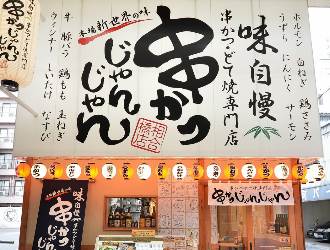 ホルモン 白ねぎ 鶏ささみ
うずら にんにく サーモン
味自慢
串かつ・どて焼専門店
本場新世界の味
串かつ
じゃんじゃん
牛 豚バラ 鶏もも 玉ねぎ
ウィンナー しいたけ なすび
串かつじゃんじゃん
味自慢
串かつ
じゃんじゃん
串かつじゃんじゃん